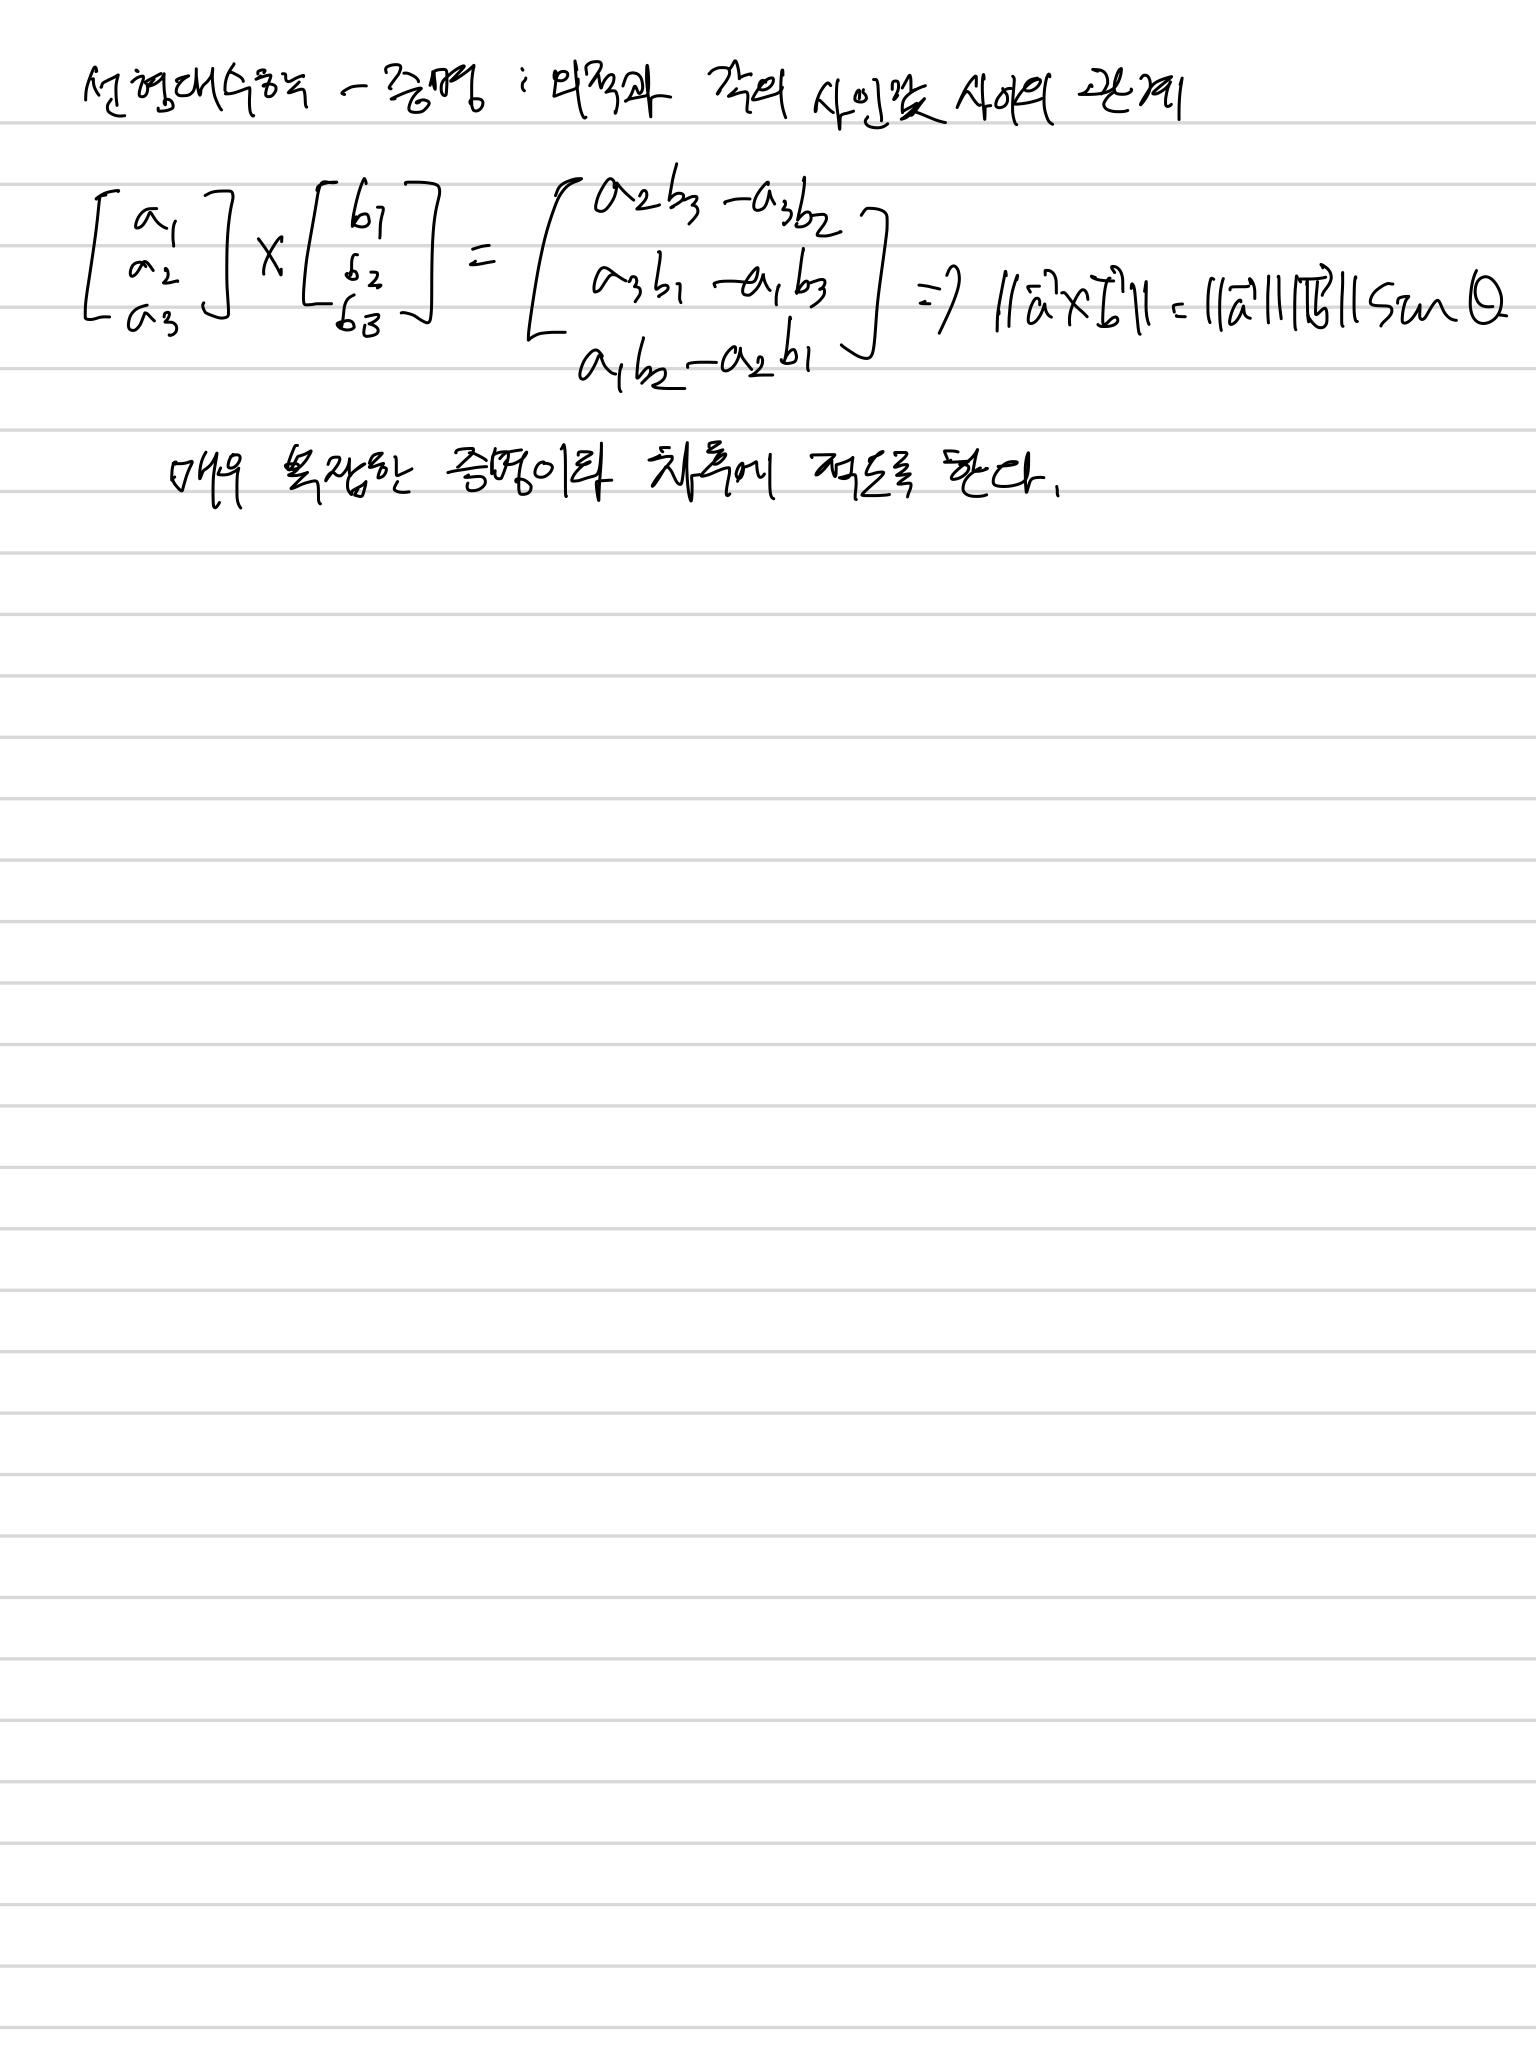 선형대수학 - 증명 : 외적과 각의 사인값 사이의 관계
[a₁ a₂ a₃] × [b₁ b₂ b₃] = [a₂b₃ - a₃b₂ a₃b₁ - a₁b₃ a₁b₂ - a₂b₁] ⇒ ||a⃗×b⃗|| = ||a⃗|| ||b⃗|| sin θ
매우 복잡한 증명이라 차후에 적도록 한다.